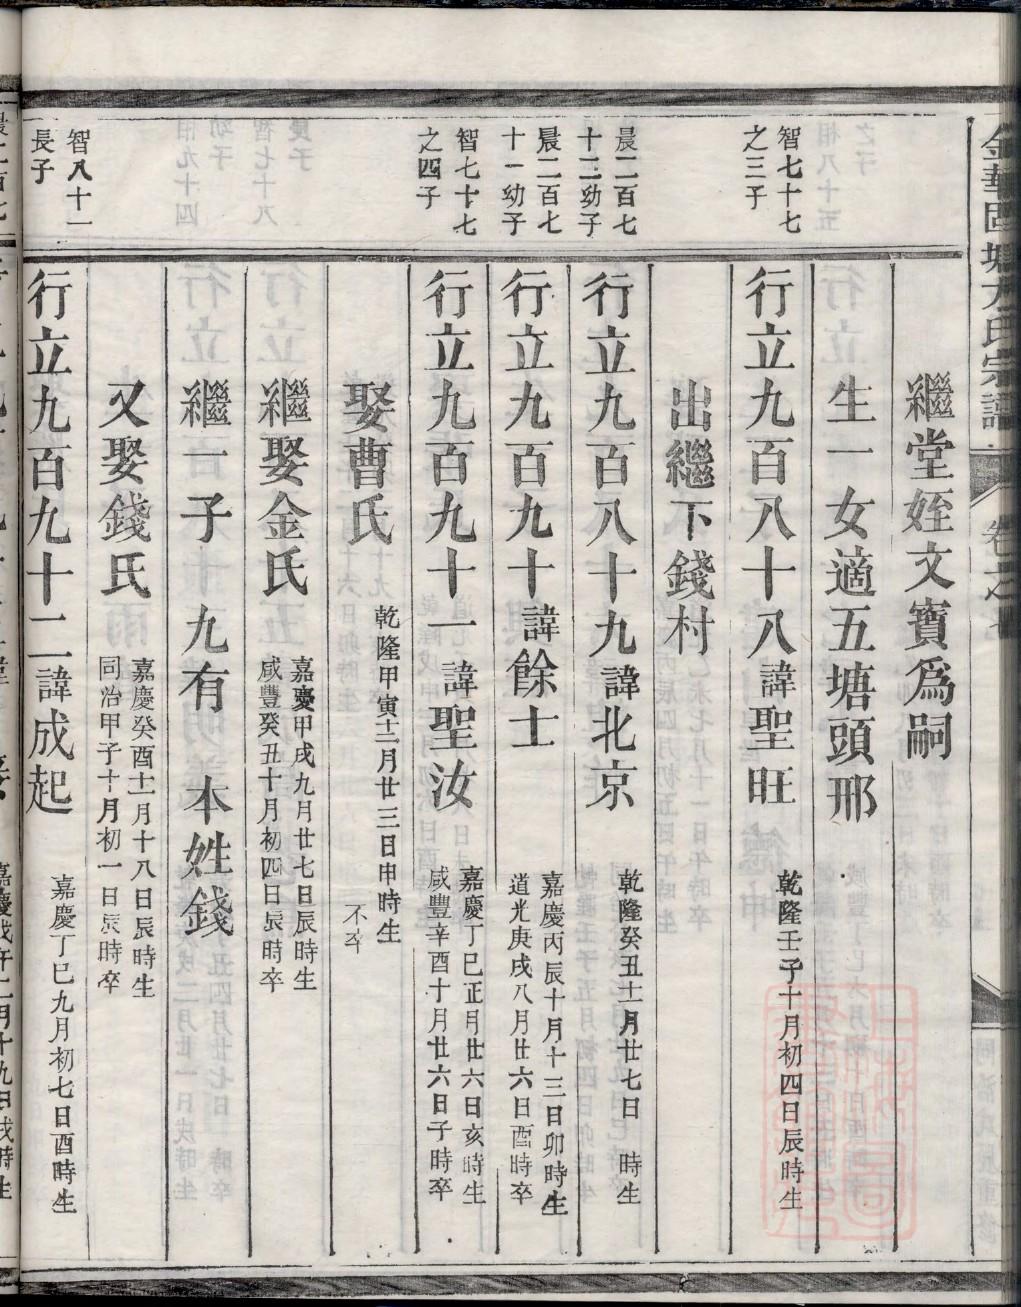 繼堂姪文寶爲嗣
生一女適五塘頭邢
智七十七
之三子
行立九百八十八諱聖旺
乾隆壬子十月初四日辰時生
出繼下錢村
晨二百七
十二幼子
行立九百八十九諱北京
乾隆癸丑十一月廿七日 時生
晨二百七
十一幼子
行立九百九十諱餘士
嘉慶丙辰十月十三日卯時生
道光庚戌八月廿六日酉時卒
智七十七
之四子
行立九百九十一諱聖汝
嘉慶丁巳正月廿六日亥時生
咸豐辛酉十月廿六日子時卒
娶曹氏
乾隆甲寅十二月廿三日申時生
不卒
繼娶金氏
嘉慶甲戌九月廿七日辰時生
咸豐癸丑十月初四日辰時卒
繼一子 九有 本姓錢
又娶錢氏
嘉慶癸酉十一月十八日辰時生
同治甲子十月初一日辰時卒
智八十一
長子
行立九百九十二諱成起
嘉慶丁巳九月初七日酉時生